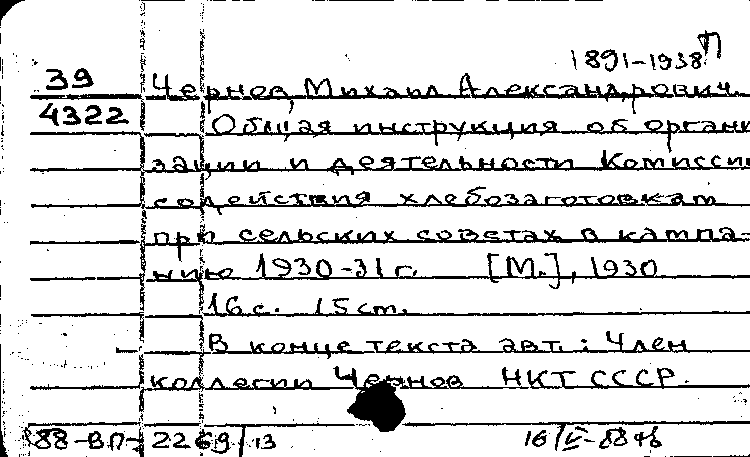 1891-1938 П
39 Чернов, Михаил Александрович.
4322 Общая инструкция об органи
зации и деятельности Комиссии
содействия хлебозаготовкам
при сельских советах в кампа-
нию 1930-31 г. [М.], 1930
16 с. 15 cm.
В конце текста авт.: Член
коллегии Чернов НКТ СССР.
88-ВП-2269/13